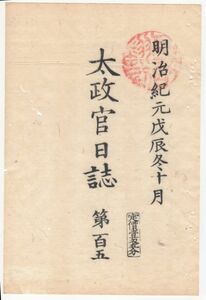 明治紀元戊辰冬十月
太政官日誌
第百五